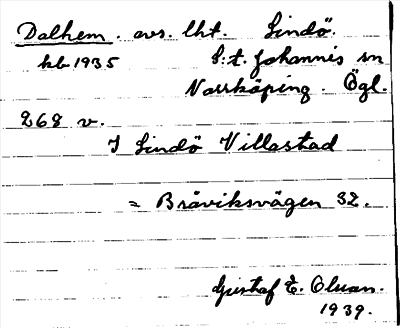 Dalhem. avs. lht. Lindö.
kb 1935 S:t Johannis sn
Norrköping. Ögl.
268 v.
I Lindö Villastad
= Bråviksvägen 32.
Gustaf E. Olsson.
1939.